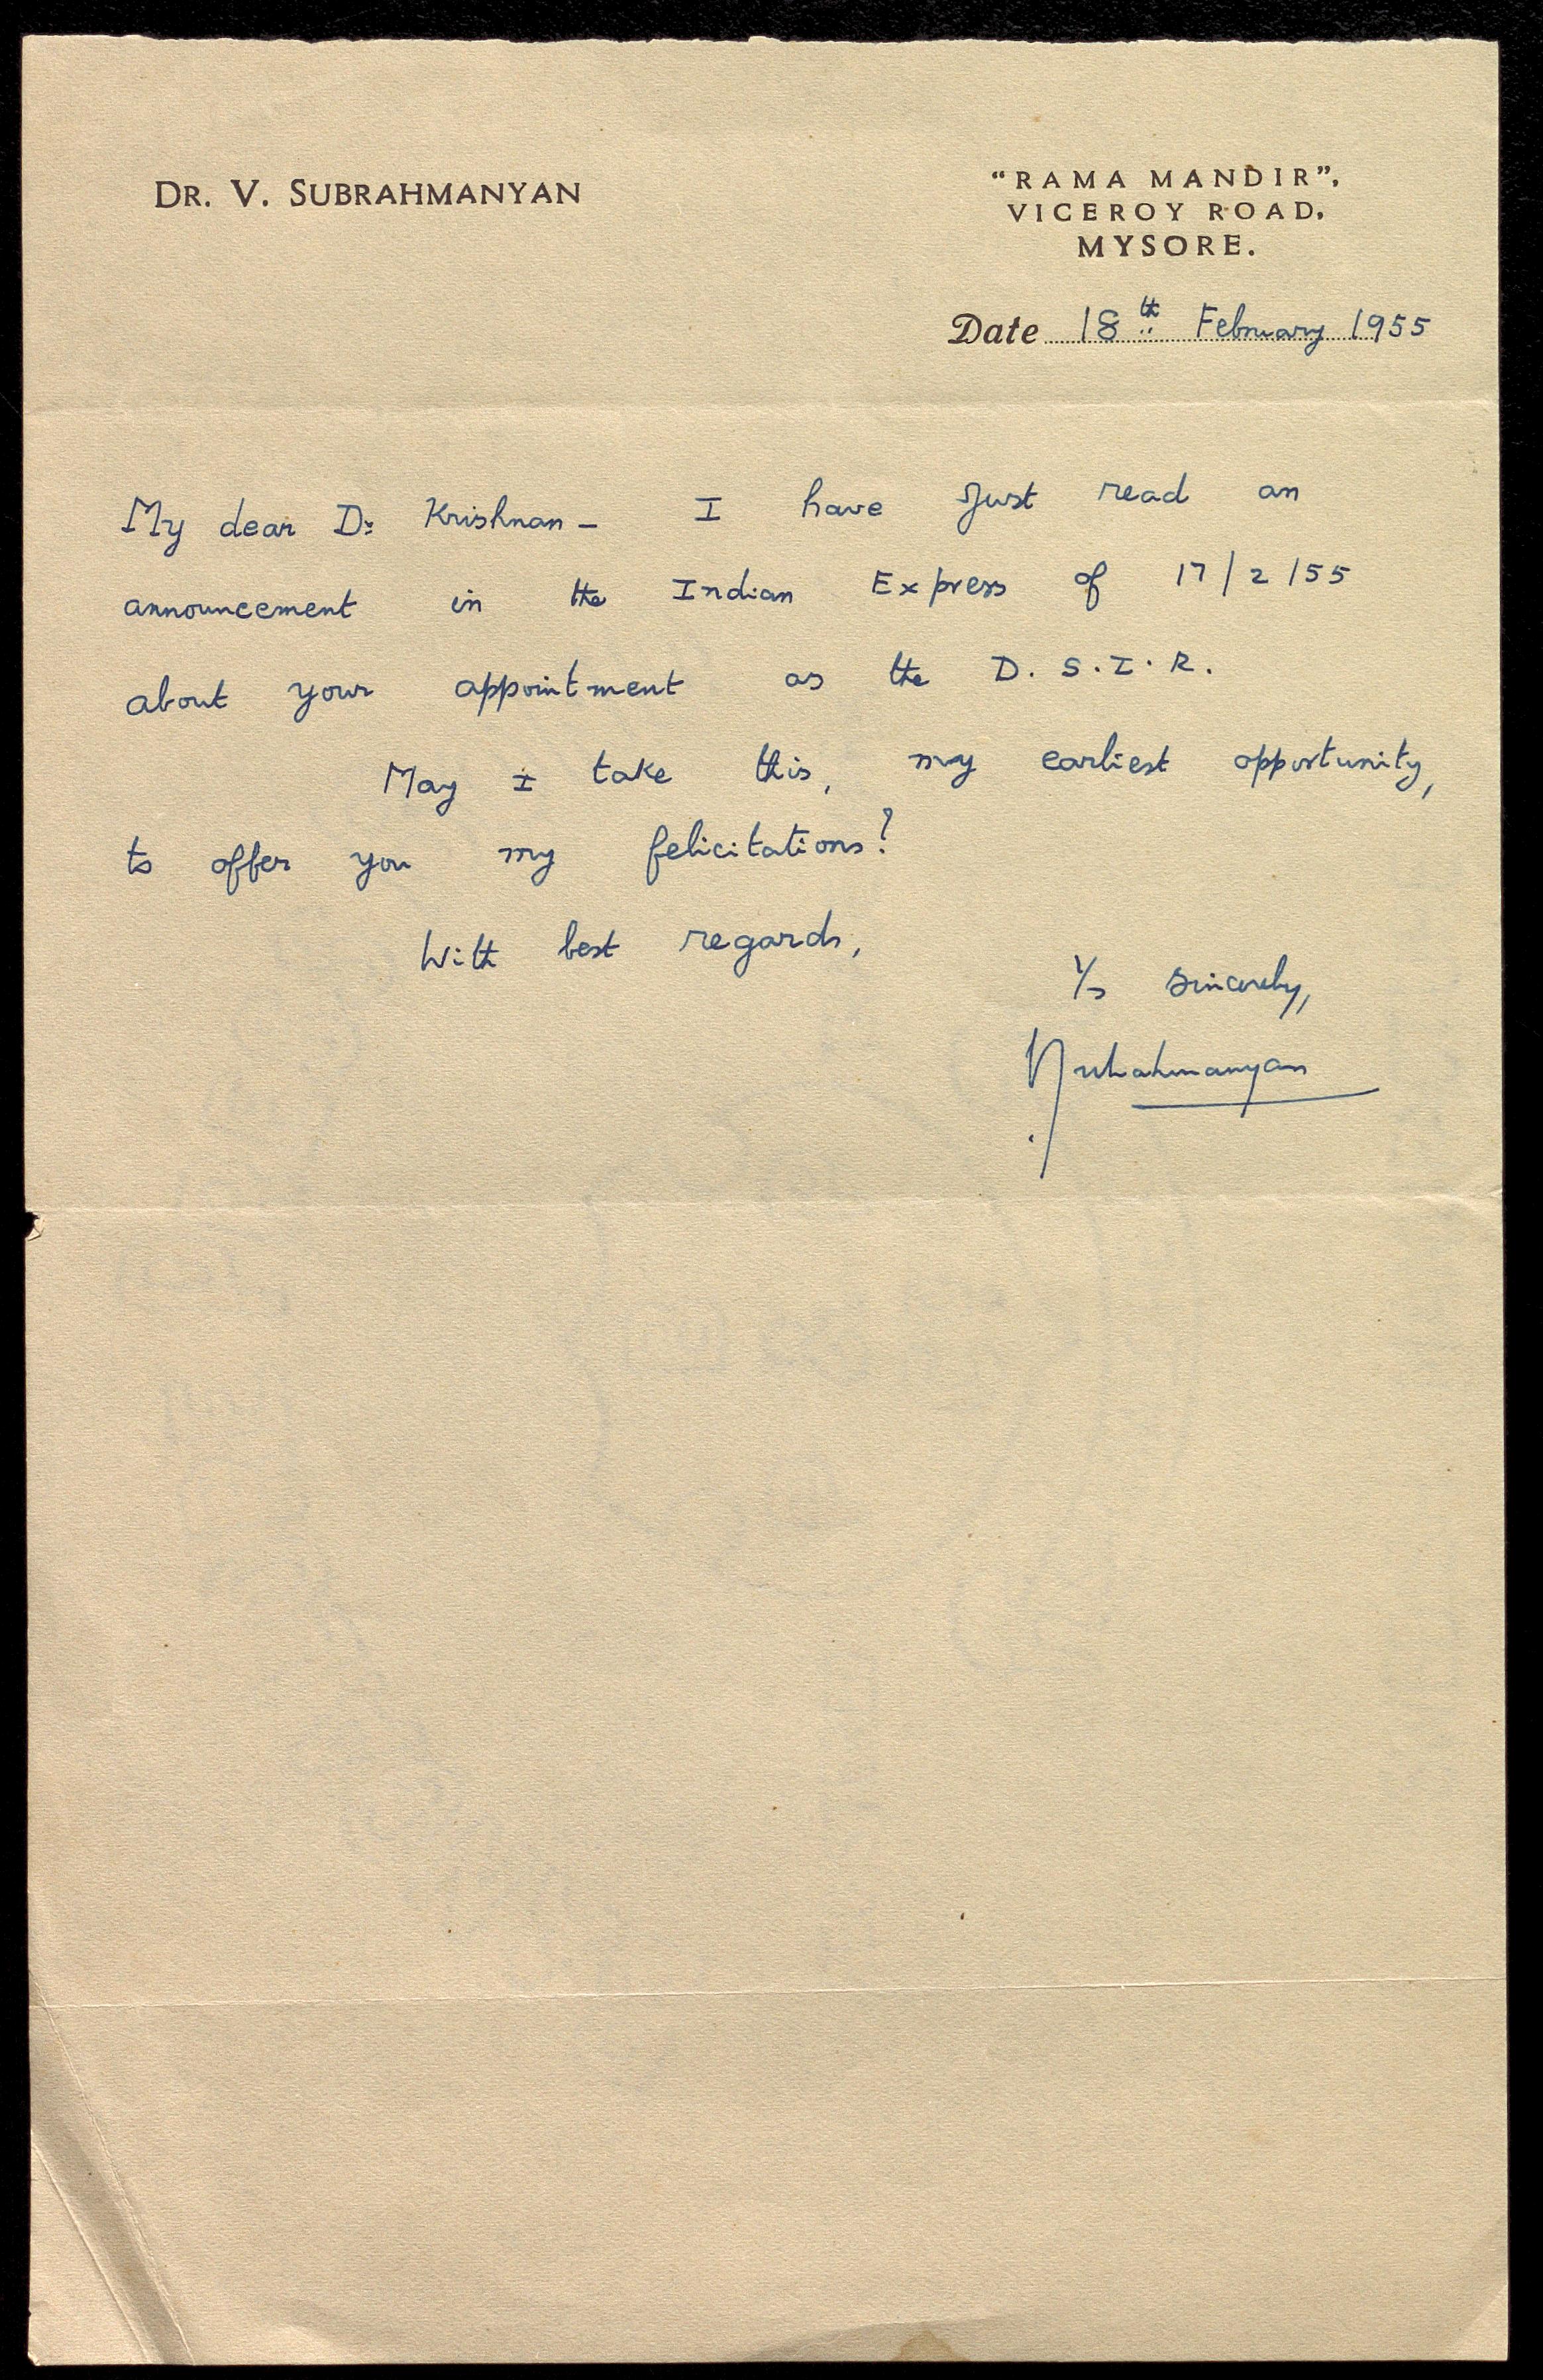 DR. V. SUBRAHMANYAN
"RAMA MANDIR",
VICEROY ROAD,
MYSORE.
Date 18th February 1955
My dear Dr Krishnan – I have just read an
announcement in the Indian Express of 17/2/55
about your appointment as the D.S.I.R.
May I take this, my earliest opportunity,
to offer you my felicitations?
With best regards,
Y/s sincerely,
V Subrahmanyan